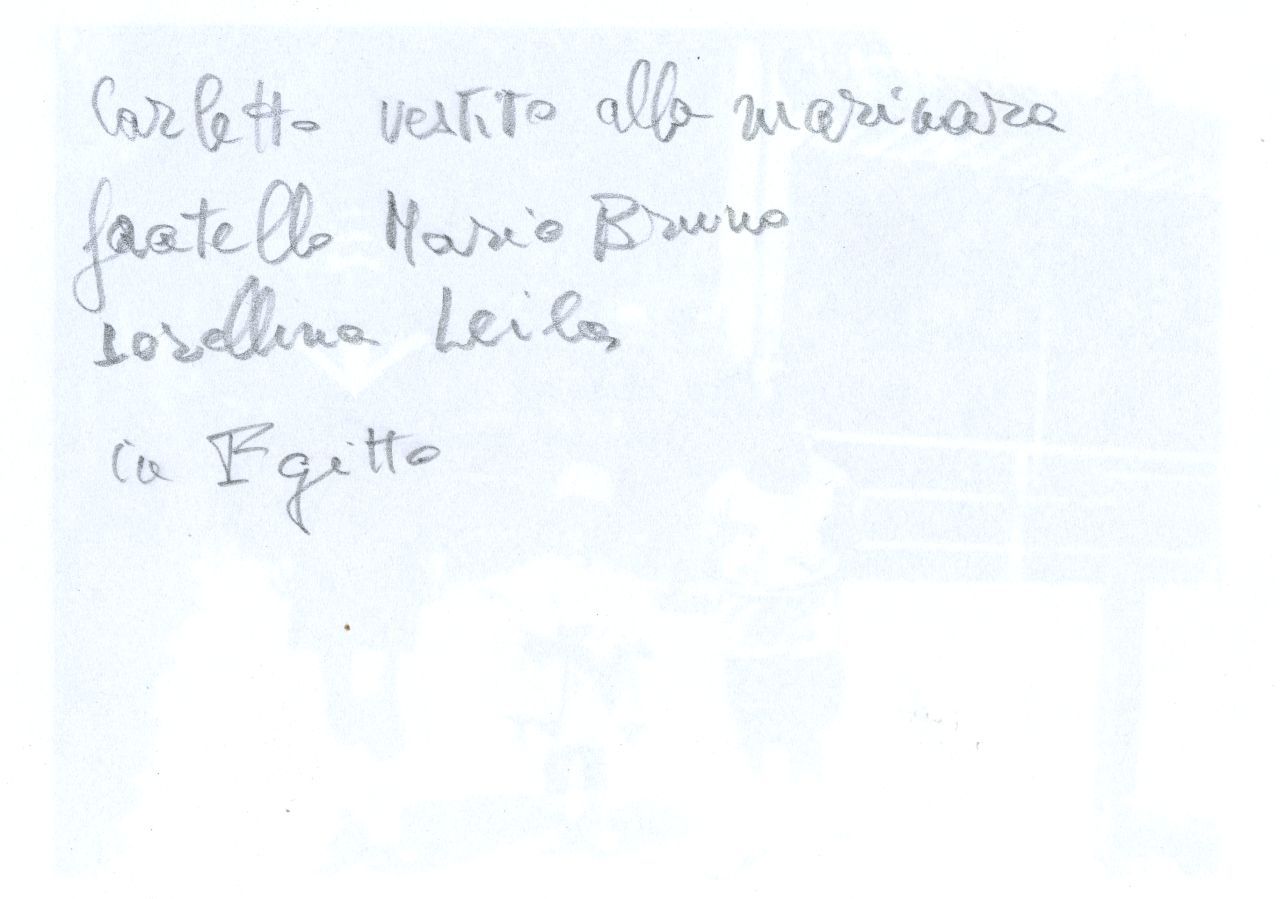 Carletto vestito alla marinara
fratello Mario Bruno
sorellina Leila
in Egitto